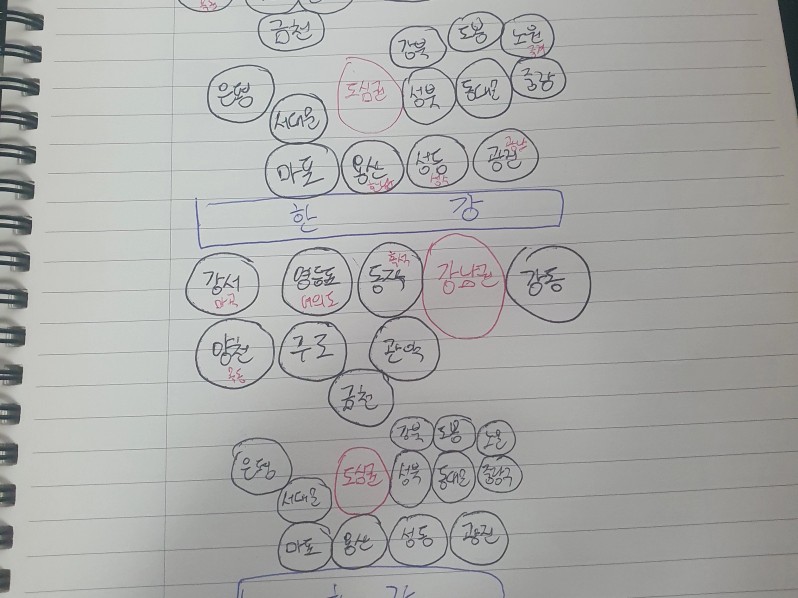 금천
강북 도봉 노원
중계
은평 도심권 성북 동대문 중랑
서대문
마포 용산 성동 광진
한남 성수 광나
한 강
강서 영등포 동작 강남권 강동
마곡 여의도 흑석
양천 구로 관악
목동
금천
강북 도봉 노원
은평 도심권 성북 동대문 중랑구
서대문
마포 용산 성동 광진
한 강